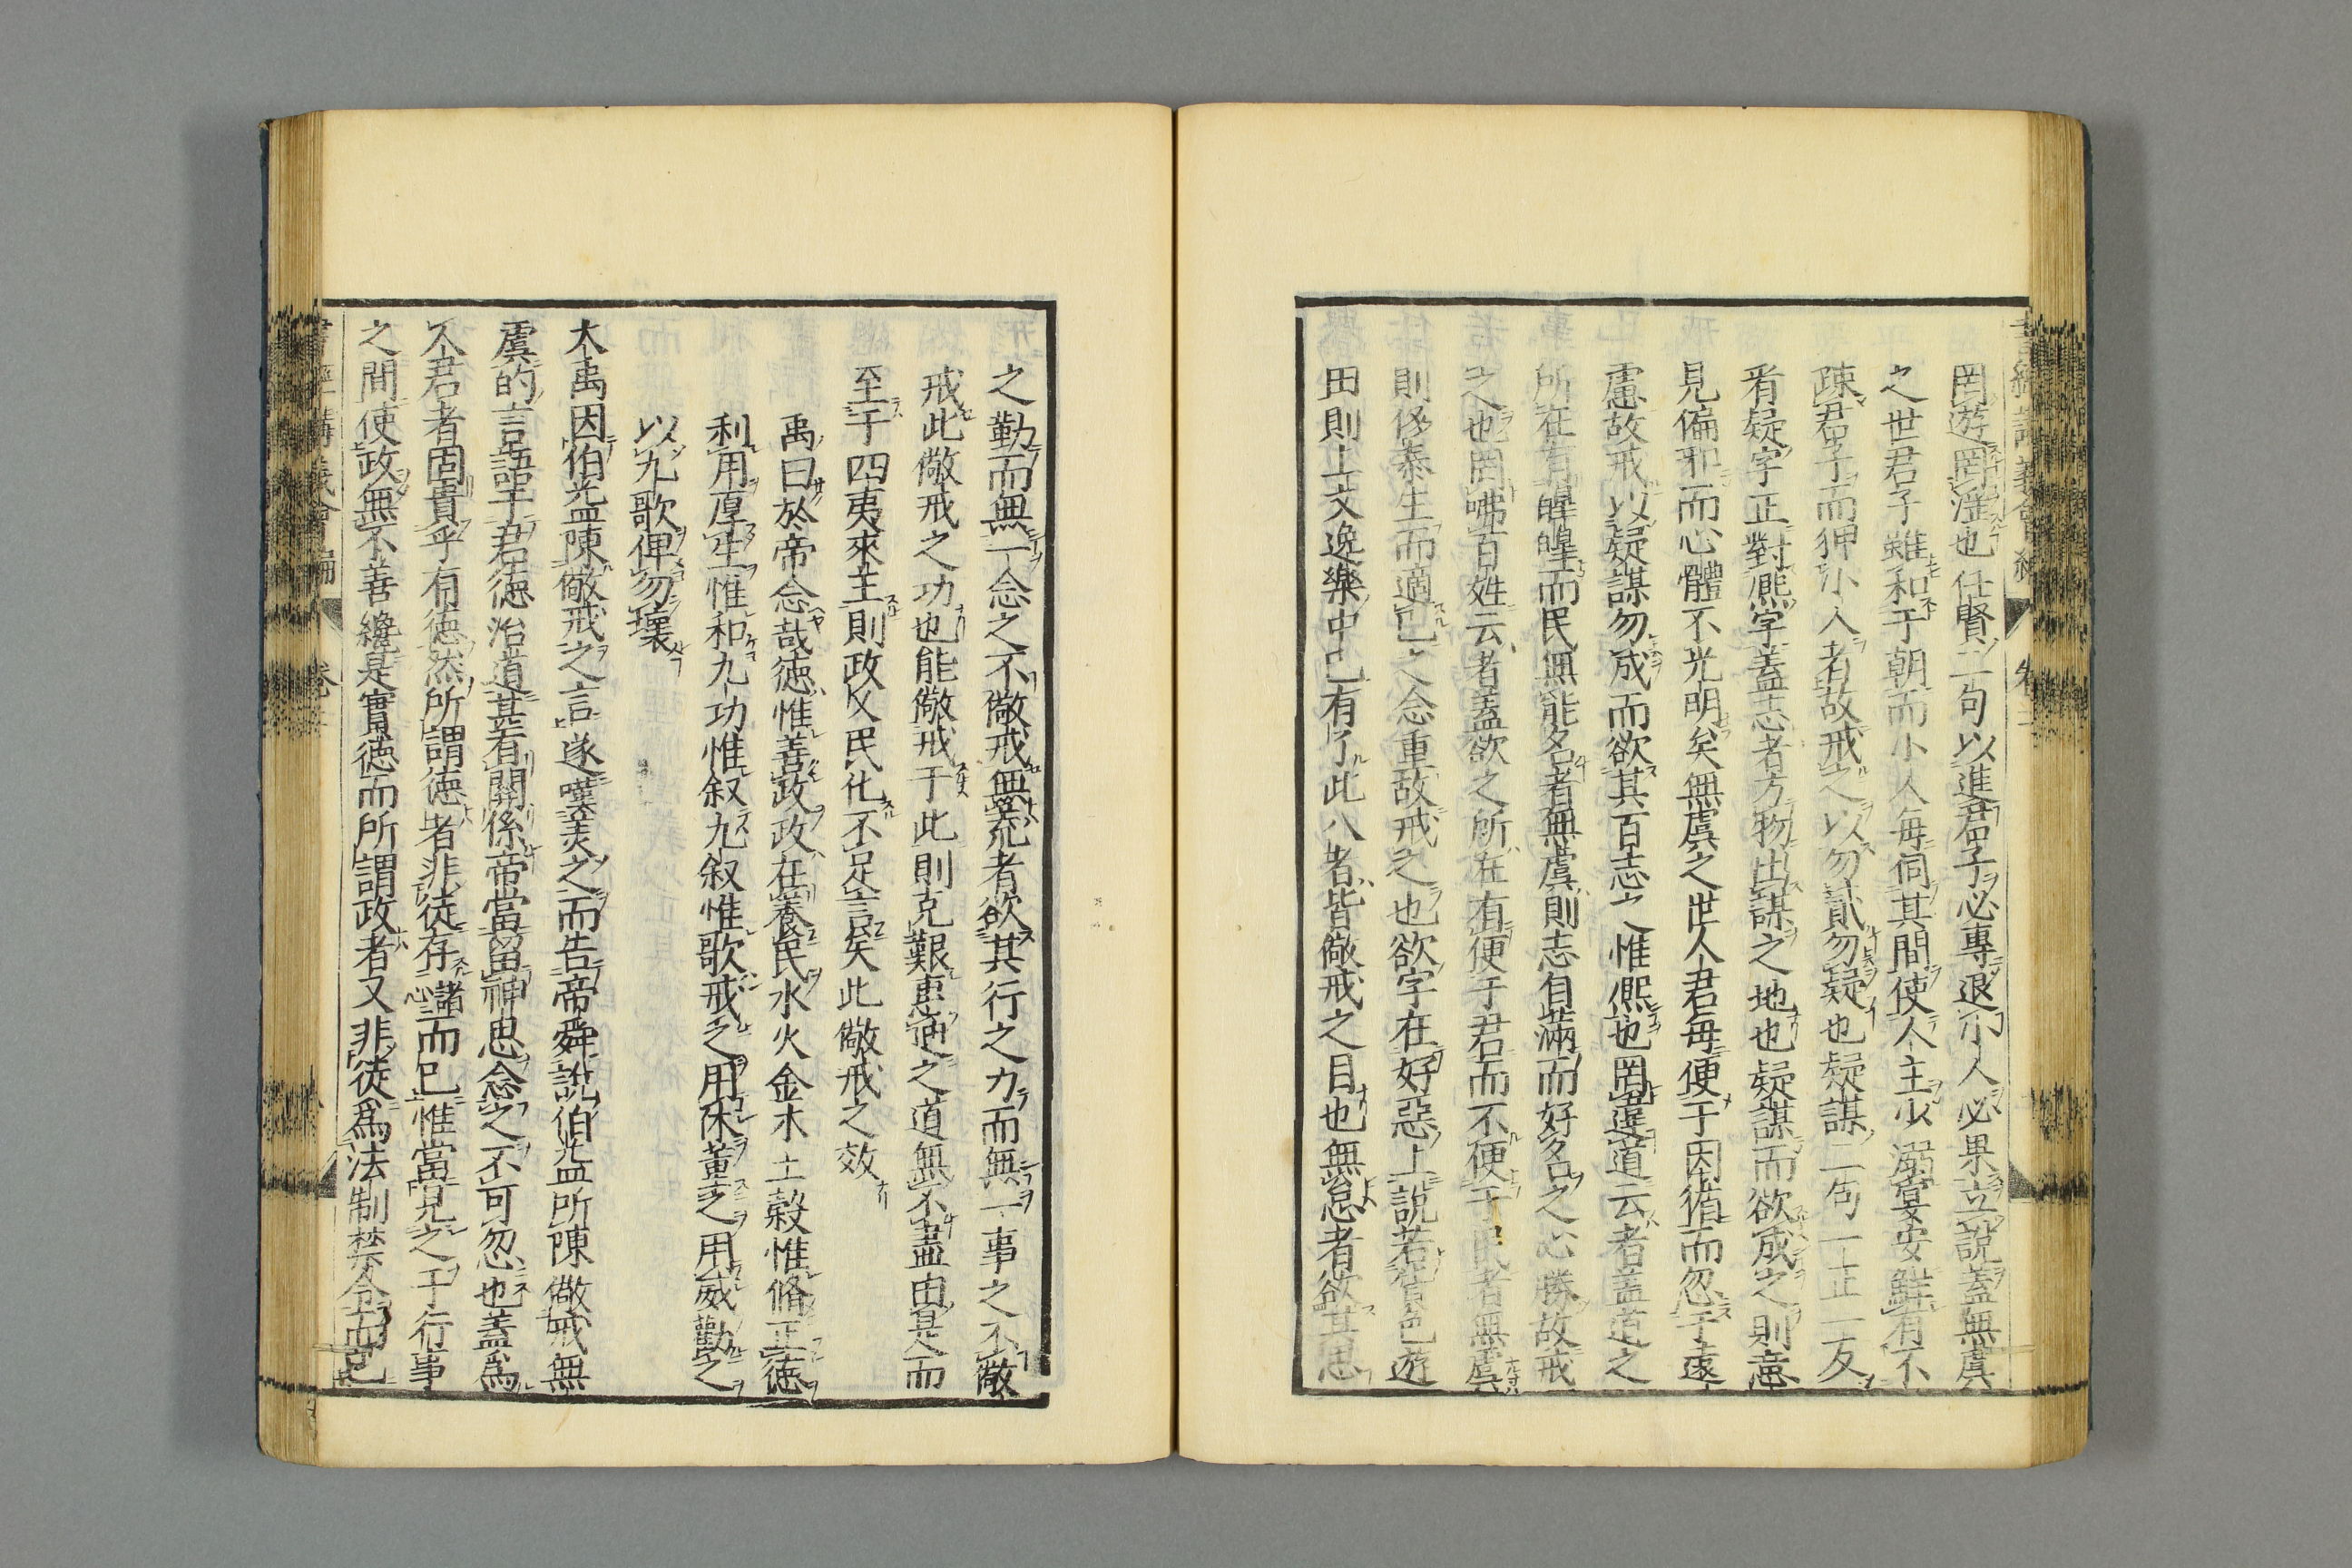 罔遊罔滛也任賢二句以進君子必專退小人必果立說蓋無虞
之世君子雖和于朝而小人每伺其間使人主少溺宴安鮮有不
踈君子而狎小人者故戒之以勿貳勿疑也疑謀二句一正一反
看疑字正對熈字蓋志者方物出謀之地也疑謀而欲成之則意
見偏邪而心體不光明矣無虞之世人君每便于因循而忽于遠
慮故戒以疑謀勿成而欲其百志之惟熈也罔違道云者蓋道之
所在有皡皡而民無能名者無虞則志自滿而好名之心勝故戒
之也罔咈百姓云者蓋欲之所在有便于君而不便于民者無虞
則侈泰生而適己之念重故戒之也欲字在好惡上說若貨色遊
田則上文逸樂中已有了此八者皆儆戒之目也無怠者欲其思
之勤而無一念之不儆戒無荒者欲其行之力而無一事之不儆
戒此儆戒之功也能儆戒于此則克艱惠迪之道無不盡由是而
至于四夷來王則政乂民化不足言矣此儆戒之效
禹曰於帝念哉徳惟善政政在養民水火金木土穀惟脩正徳
利用厚生惟和九功惟叙九叙惟歌戒之用休董之用威勸之
以九歌俾勿壞
大禹因伯益陳儆戒之言遂嘆美之而告帝舜說伯益所陳儆戒無
虞的言語于君徳治道甚有關係帝當留神思念之不可忽也蓋爲
人君者固貴乎有徳然所謂徳者非徒存諸心而已惟當見之于行事
之間使政無不善纔是實徳而所謂政者又非徒爲法制禁令而已
書經講義會編
卷二